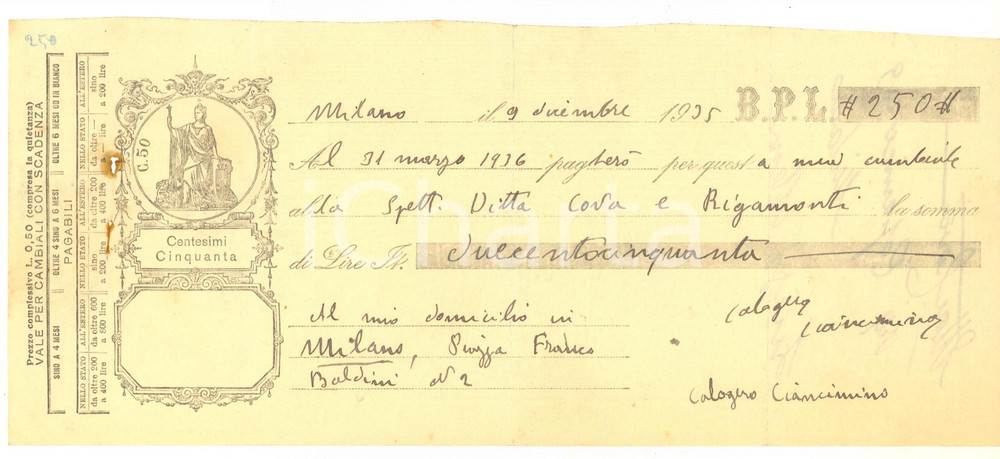 250
Prezzo complessivo L. 0,50 (compresa la quietanza)
VALE PER CAMBIALI CON SCADENZA
SINO A 4 MESI
OLTRE 4 SINO A 6 MESI
OLTRE 6 MESI OD IN BIANCO
PAGABILI
NELLO STATO da oltre 200 a 400 lire
ALL'ESTERO da oltre 600 a 800 lire
NELLO STATO sino a 200 lire
ALL'ESTERO da oltre 200 a 400 lire
NELLO STATO da oltre — a — lire
ALL'ESTERO sino a 200 lire
C. 50
Centesimi
Cinquanta
Milano il 9 dicembre 1935 B.P.L. #250#
Al 31 marzo 1936 pagherò per quest a mia cambiale
alla Spett. Ditta Cova e Rigamonti la somma
di Lire It. duecentocinquanta
Al mio domicilio in
Milano, Piazza Franco
Baldini N 2
Calogero
Ciancimino
Calogero Ciancimino
iCharta